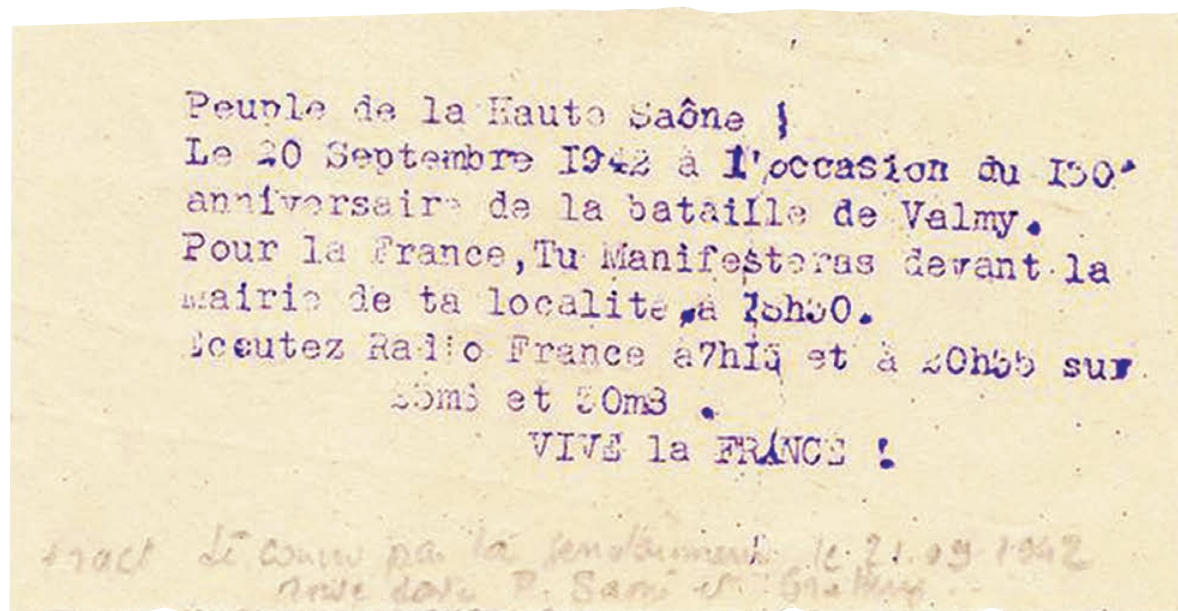 Peuple de la Haute Saône !
Le 20 Septembre I942 à l'occasion du I50°
anniversaire de la bataille de Valmy.
Pour la France,Tu Manifesteras devant la
Mairie de ta localité,à 18h30.
Ecoutez Radio France à7hI5 et à sur
et
VIVE la FRANCE !
tract par la le 21.09 1942